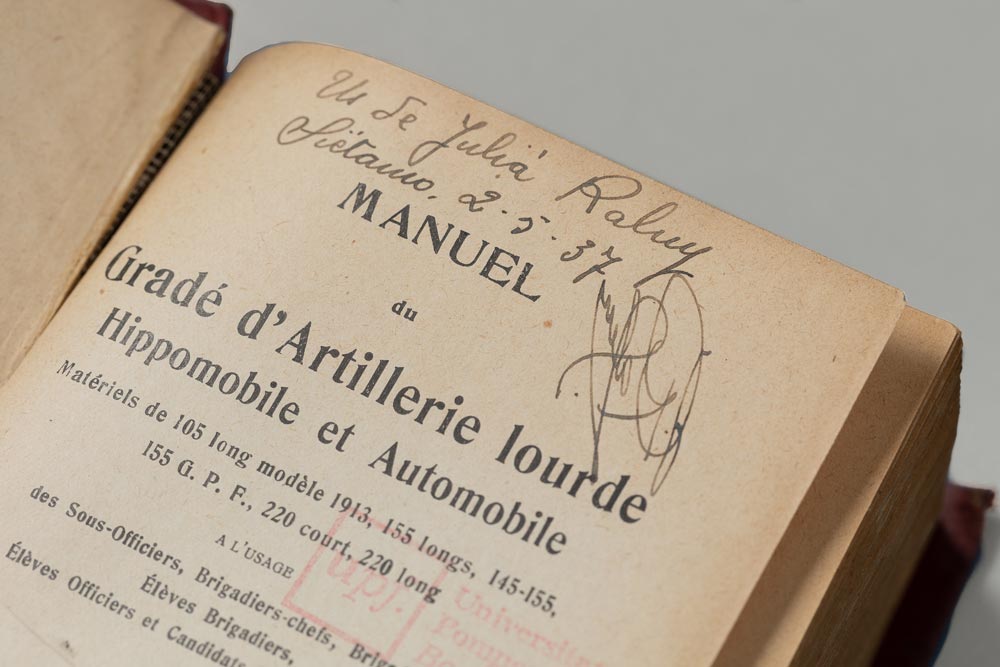 Us de Julià Raluy
Siètamo, 2-5-37
MANUEL
du
Gradé d'Artillerie lourde
Hippomobile et Automobile
Matériels de 105 long modèle 1913, 155 longs, 145-155,
155 G. P. F., 220 court, 220 long
A L'USAGE
des Sous-Officiers, Brigadiers-chefs, Briga
Élèves Brigadiers,
Élèves Officiers et Candidats
upf.
Universitat
Pompeu